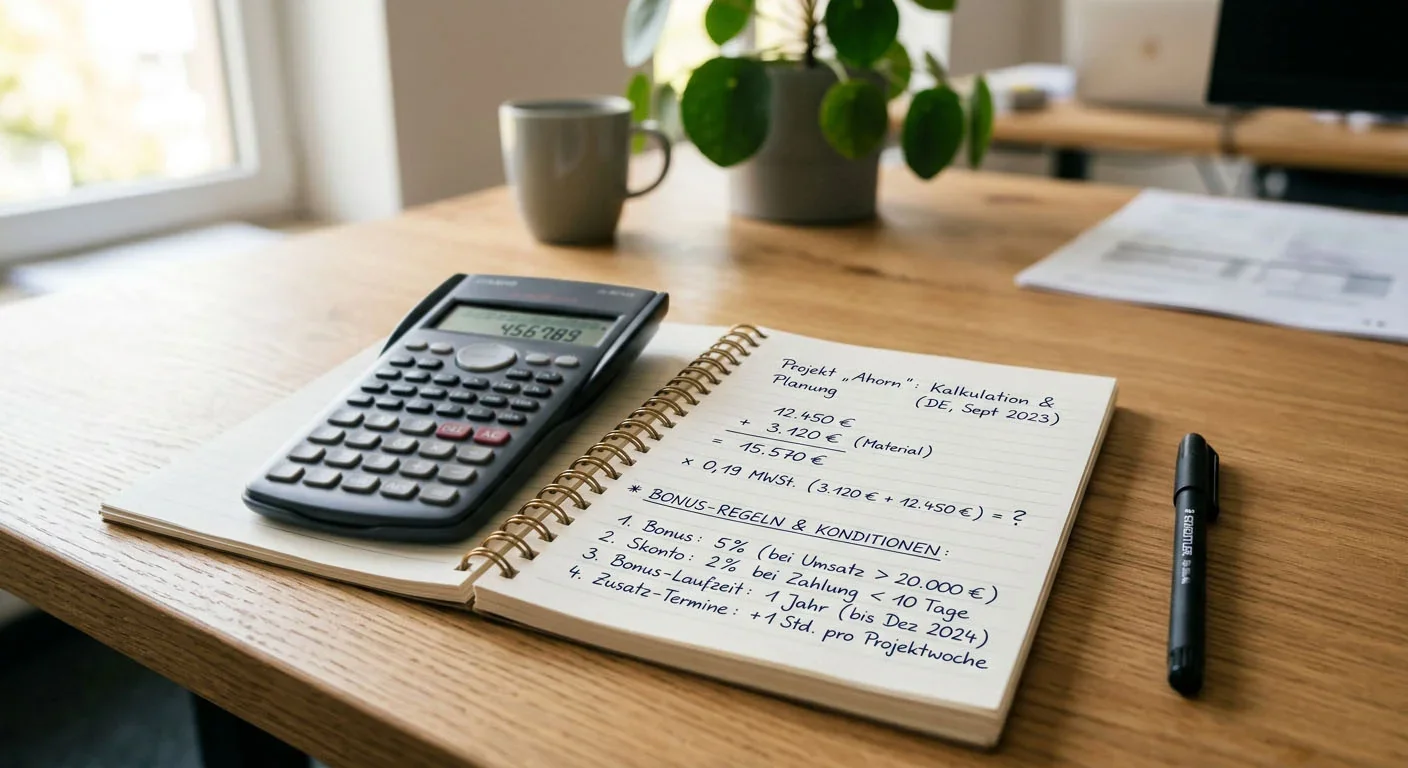 456789
Projekt „Ahorn": Kalkulation &
Planung (DE, Sept 2023)
12.450 €
+ 3.120 € (Material)
= 15.570 €
× 0,19 MWSt. (3.120 € + 12.450 €) = ?
* BONUS-REGELN & KONDITIONEN:
1. Bonus: 5% (bei Umsatz > 20.000 €)
2. Skonto: 2% bei Zahlung < 10 Tage
3. Bonus-Laufzeit: 1 Jahr (bis Dez 2024)
4. Zusatz-Termine: +1 Std. pro Projektwoche
STAEDTLER